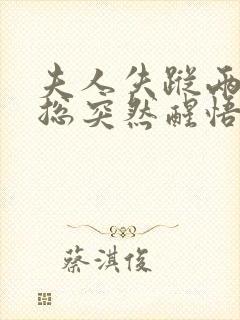 夫人失踪两
总突然醒悟
蔡淇俊